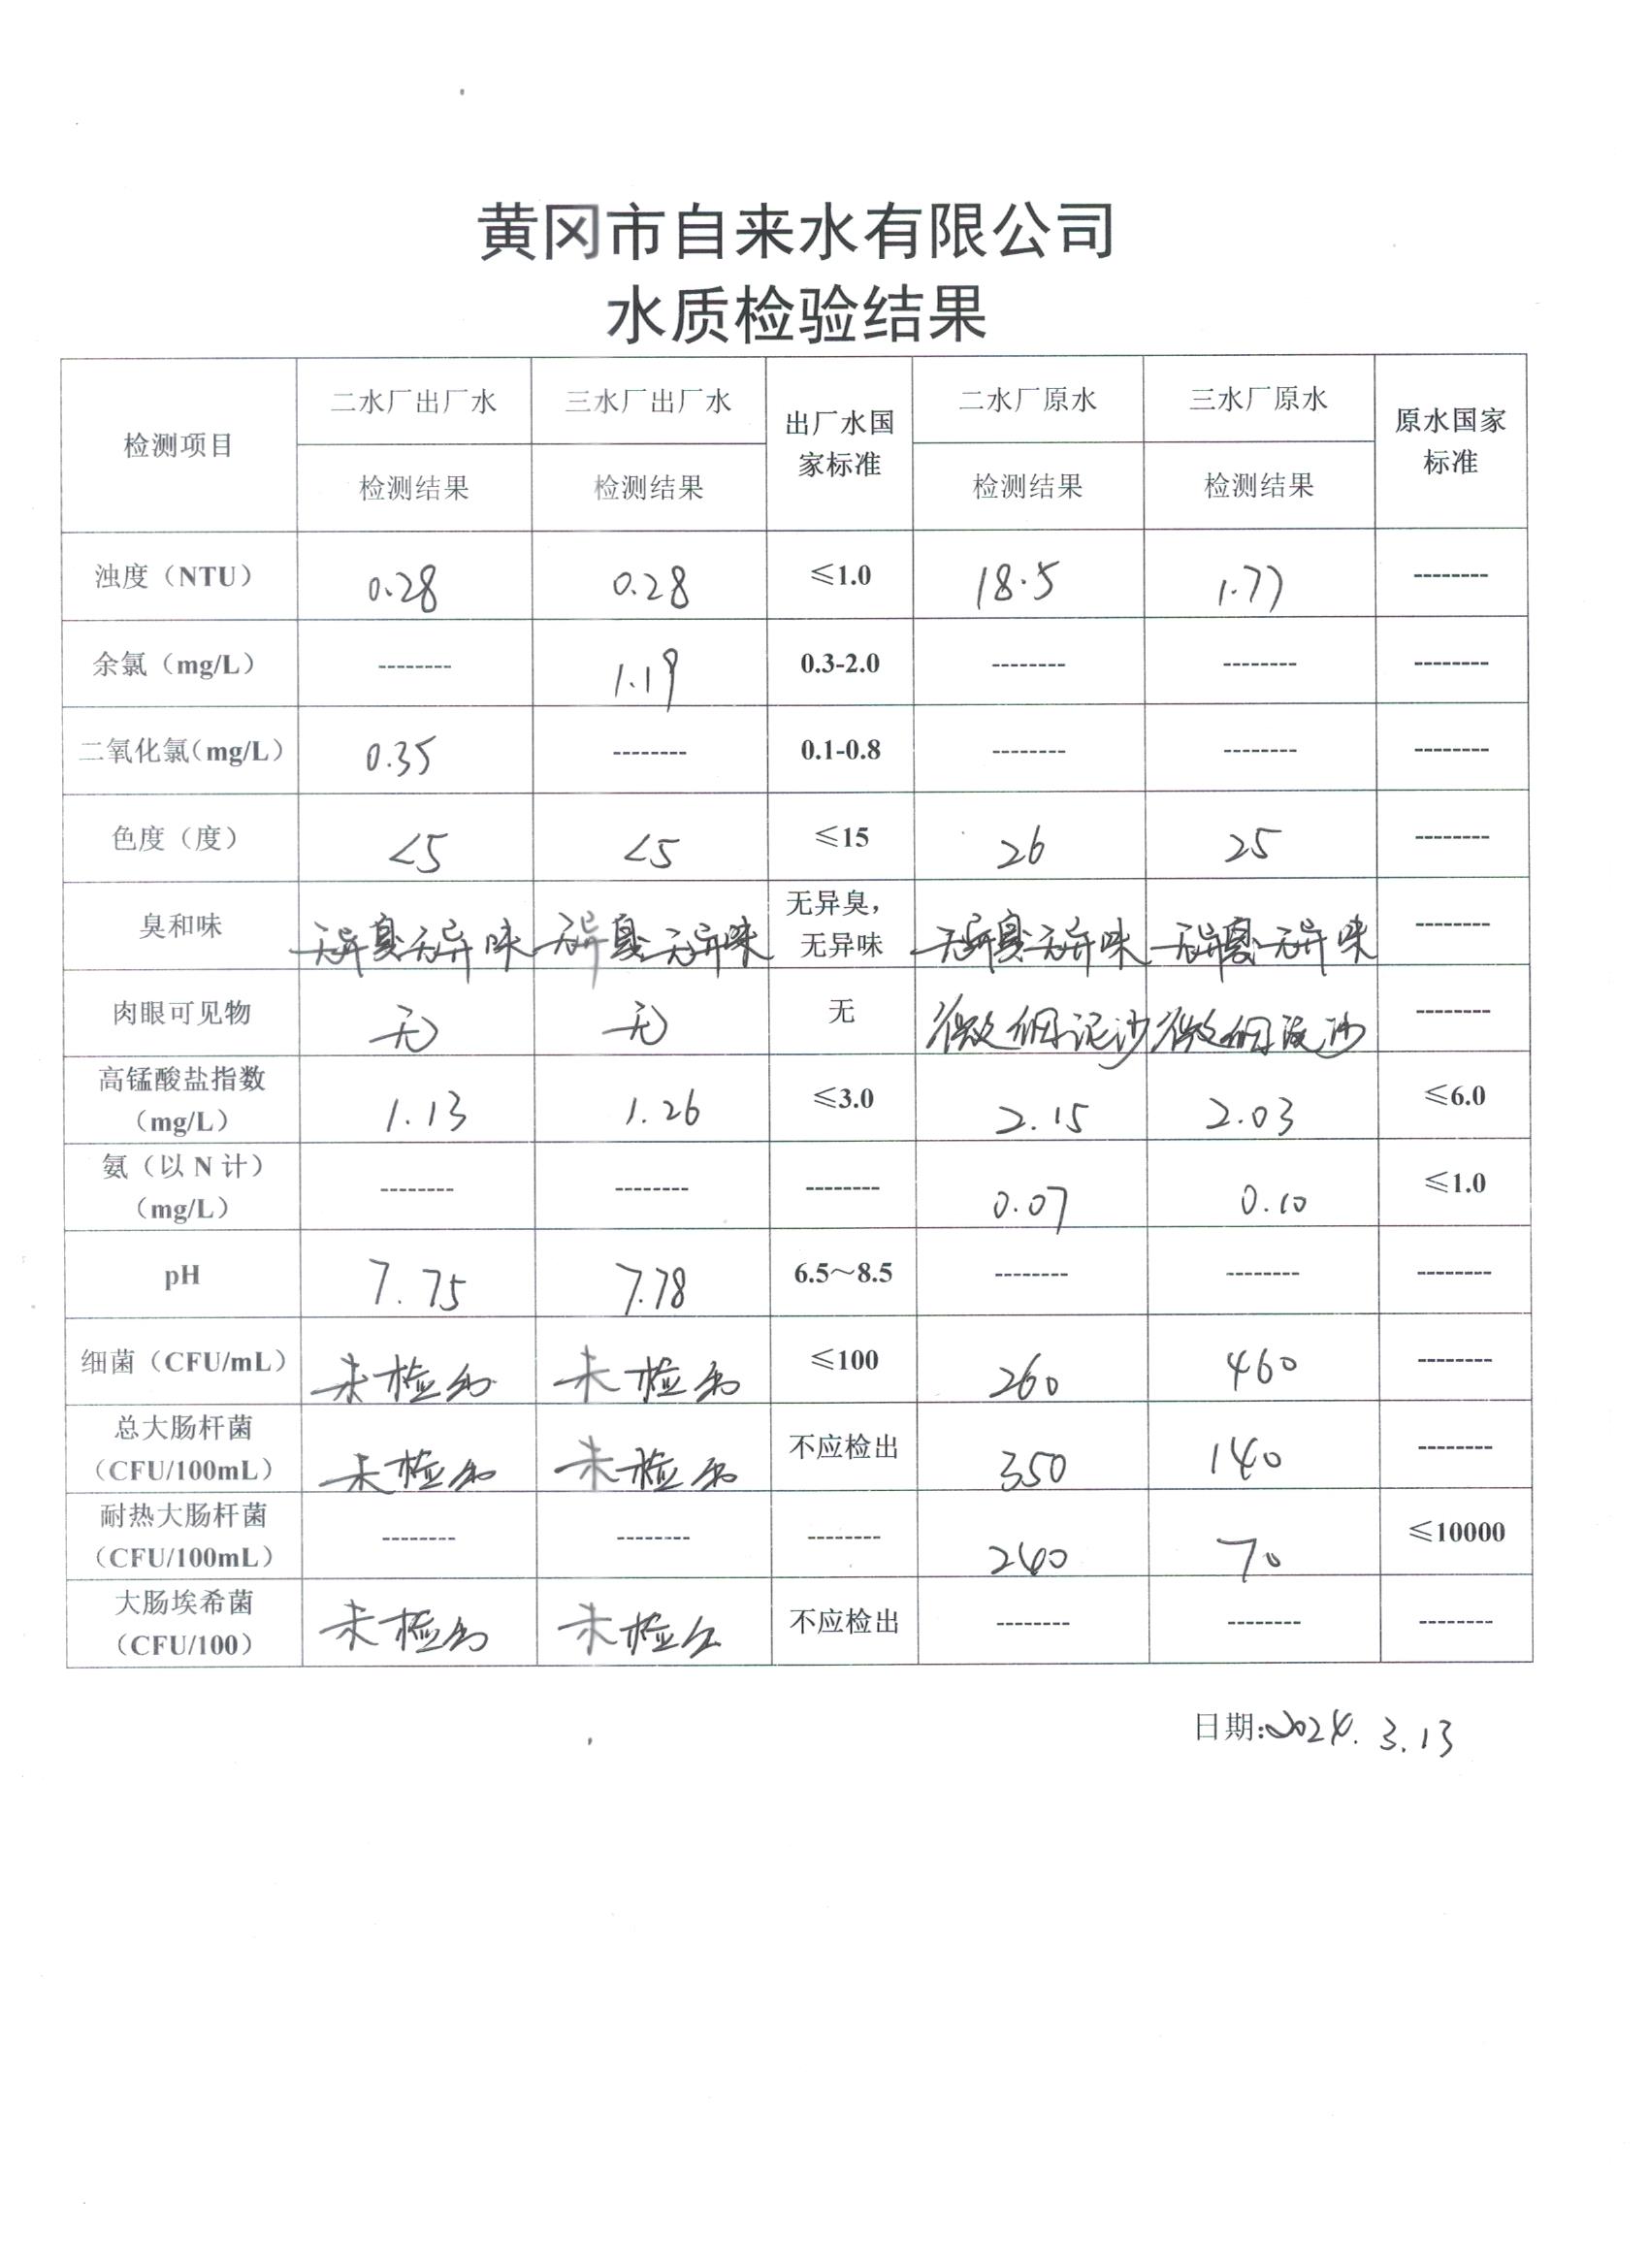 黄冈市自来水有限公司
水质检验结果
检测项目 二水厂出厂水 三水厂出厂水 出厂水国家标准 二水厂原水 三水厂原水 原水国家标准
检测结果 检测结果 检测结果 检测结果
浊度（NTU） 0.28 0.28 ≤1.0 18.5 1.77 --------
余氯（mg/L） -------- 1.19 0.3-2.0 -------- -------- --------
二氧化氯（mg/L） 0.35 -------- 0.1-0.8 -------- -------- --------
色度（度） <5 <5 ≤15 26 25 --------
臭和味 无异臭:无异味 无异臭:无异味 无异臭，无异味 无异臭:无异味 无异臭:无异味 --------
肉眼可见物 无 无 无 微细泥沙 微细泥沙 --------
高锰酸盐指数（mg/L） 1.13 1.26 ≤3.0 2.15 2.03 ≤6.0
氨（以 N 计）（mg/L） -------- -------- -------- 0.07 0.10 ≤1.0
pH 7.75 7.78 6.5～8.5 -------- -------- --------
细菌（CFU/mL） 未检出 未检出 ≤100 260 460 --------
总大肠杆菌（CFU/100mL） 未检出 未检出 不应检出 350 140 --------
耐热大肠杆菌（CFU/100mL） -------- -------- -------- 240 70 ≤10000
大肠埃希菌（CFU/100） 未检出 未检出 不应检出 -------- -------- --------
日期:2024.3.13